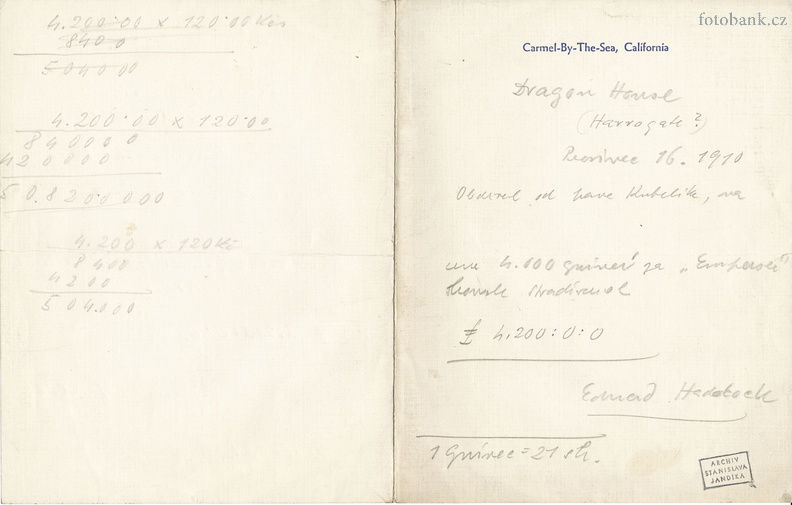 4.200·00 x 120·00 Kčs
8400
504000
4.200·00 x 120·00
840000
420000
50.8200000
4.200 x 120 Kč
8400
4200
504.000
fotobank.cz
Carmel-By-The-Sea, California
Dragon House
(Harrogate?)
Prosinec 16. 1910
Obdržel od pana Kubelíka, na
4.000 guineí za „Emperor"
housle Stradivuol
£ 4.200:0:0
Edward
1 Guinec = 21 sh.
ARCHIV
STANISLAVA
JANDÍKA